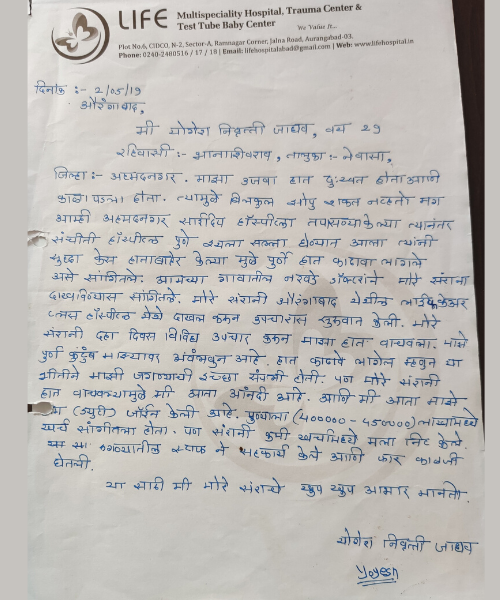 LIFE
Multispeciality Hospital, Trauma Center &
Test Tube Baby Center
We Value It...
Plot No.6, CIDCO, N-2, Sector-A, Ramnagar Corner, Jalna Road, Aurangabad-03.
Phone: 0240-2480516 / 17 / 18 | Email: lifehospitalabad@gmail.com | Web: www.lifehospital.in
दिनांक :- 2/05/19
औरंगाबाद,
मी योगेश निवृत्ती जाधव, वय 29
रहिवासी :- भानाशिवराव, तालुका :- नेवासा,
जिल्हा :- अहमदनगर. माझा उजवा हात दुःखत होता आणि
काळा पडला होता. त्यामुळे बिलकुल झोपु शकत नव्हतो मग
आम्ही अहमदनगर हॉस्पीटला तपासण्या केल्या त्यानंतर
संचीती हॉस्पीटल पुणे सल्ला देण्यात आला त्यांनी
सुद्धा केस हाताबाहेर केल्या मुळे पुर्ण हात काढावा लागेल
असे सांगितले. आमच्या गावातील नरवडे डॉक्टरांने मोरे सरांना
दाखविण्यास सांगितले. मोरे सरांनी औरंगाबाद येथील लाईफकेअर
प्लस हॉस्पीटल येथे दाखल करून उपचारास सुरुवात केली. मोरे
सरांनी दहा दिवस विविध उपचार करून माझा हात वाचवला. माझे
पुर्ण कुटुंब माझ्यावर अवलंबून आहे. हात काढावे लागेल म्हणून या
भीतीने माझी जगण्याची इच्छा संपली होती. पण मोरे सरांनी
हात वाचवल्यामुळे मी आता आनंदी आहे. आणि मी आता माझे
(ड्युटी) जॉईन केली आहे. पुण्याला (400000 - 450000) लाखांमध्ये
खर्च सांगीतला होता. पण सरांनी कमी खर्चामध्ये मला निट केले.
रुग्णालयातील स्टाफ ने सहकार्य केले आणि फार काळजी
घेतली.
या साठी मी मोरे सरांचे खुप खुप आभार मानतो.
योगेश निवृत्ती जाधव
Yogesh